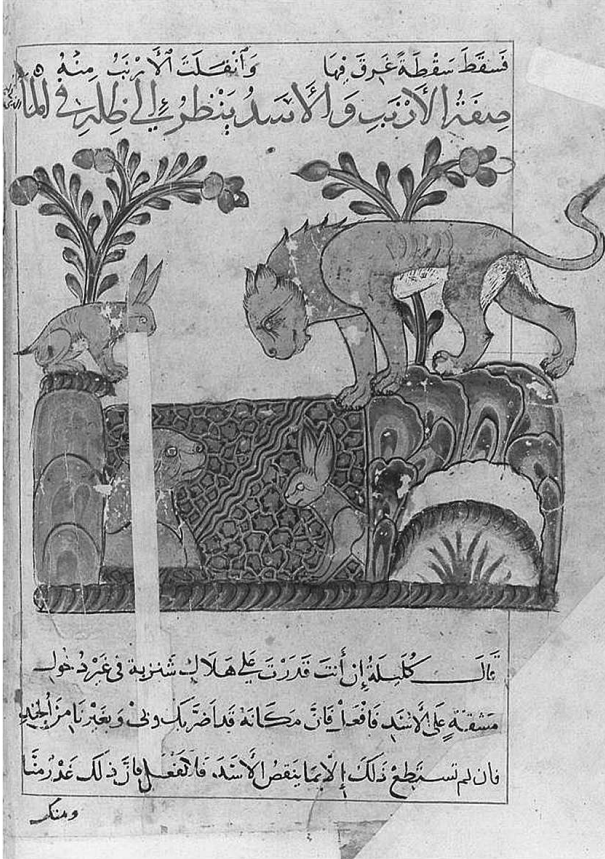 فَسَقَطَ سَقْطَةً غَرِقَ فِيهَا وَانْفَلَتَ الْأَرْنَبُ مِنْهُ
صِفَةُ الْأَرْنَبِ وَالْأَسَدُ يَنْظُرُ إِلَى ظِلِّهِ فِي الْمَاءِ
قَالَ كَلِيلَةُ إِنْ أَنْتَ قَدَرْتَ عَلَى هَلَاكِ شَنْزَبَة فِي غَيْرِ دُخُولِ
مَشَقَّةٍ عَلَى الْأَسَدِ فَافْعَلْ فَإِنَّ مَكَانَهُ قَدْ أَضَرَّ بِكَ وَبِي وَبِغَيْرِنَا مِنَ الْجُنْدِ
فَإِنْ لَمْ تَسْتَطِعْ ذَلِكَ إِلَّا بِمَا يُنَقِّصُ الْأَسَدَ فَلَا تَفْعَلْ فَإِنَّ ذَلِكَ غَدْرٌ مِنَّا
ومنك